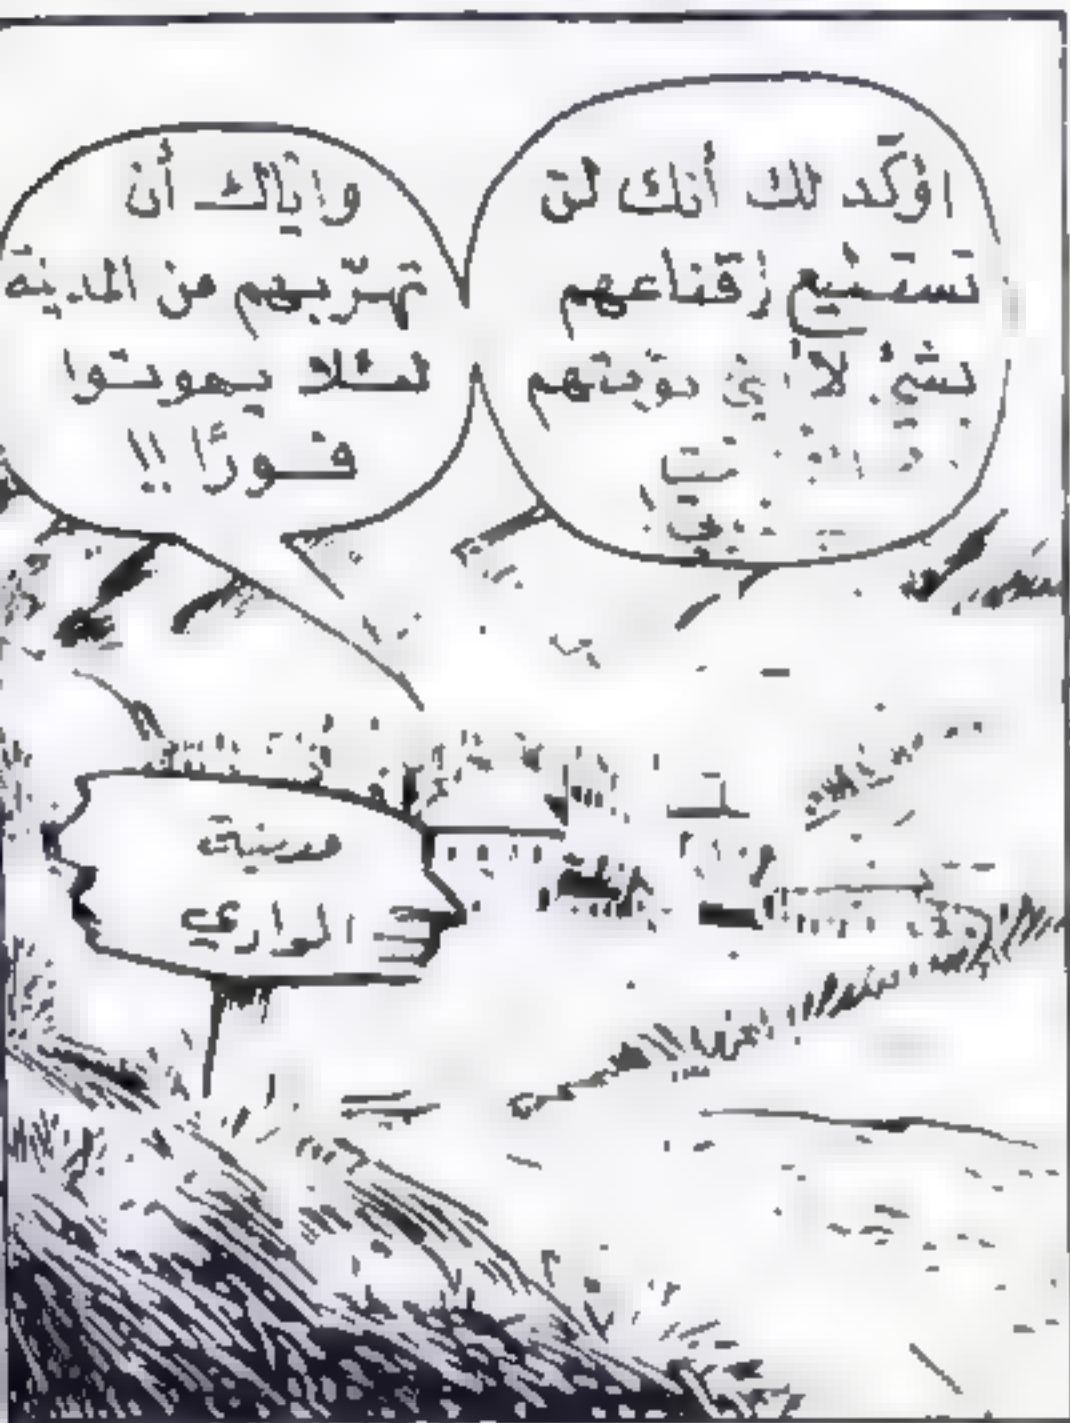 اؤكّد لك أنك لن
تستطيع إقناعهم
بشئ. لأني نوّمتهم
وايّاك أن
تهرّبهم من المدينة
لئلا يموتوا
فورًا !!
مدينة
الواري